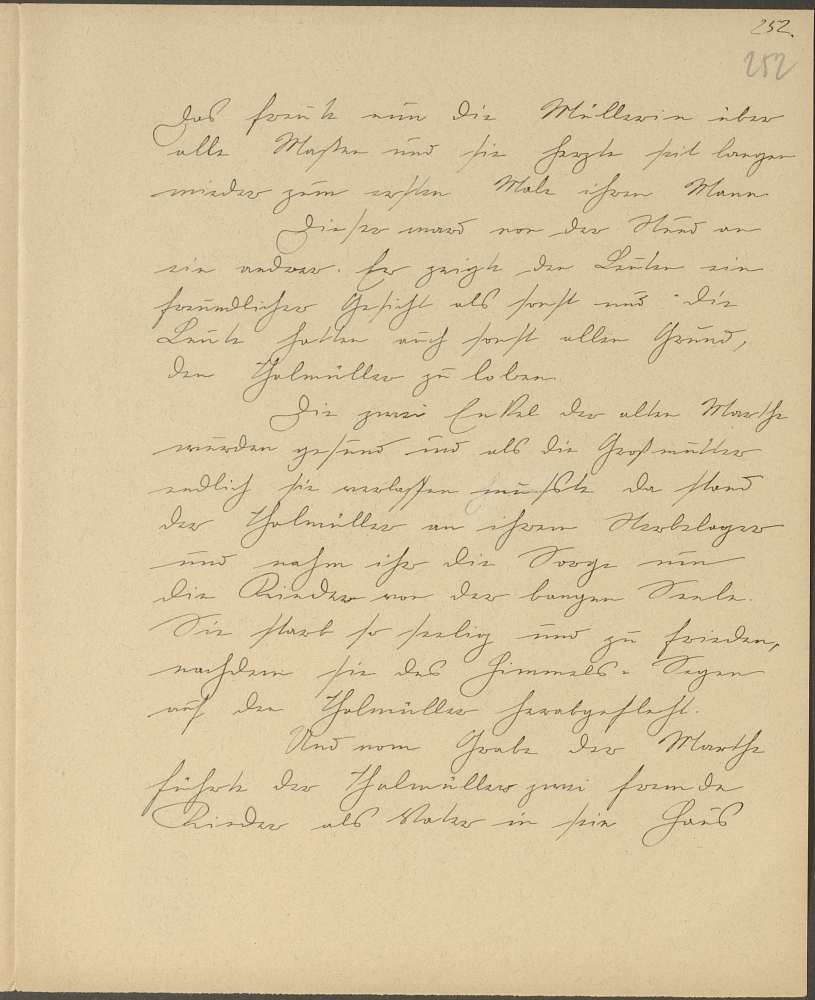 252.
252
Das freute nun die Müllerin über
alle Maßen und sie herzte seit langen
wieder zum ersten Male ihren Mann.
Dieser ward von der Stund an
ein andrer. Er zeigte den Leuten ein
freundlicher Gesicht als sonst und die
Leute hatten auch sonst allen Grund,
den Thalmüller zu loben.
Die zwei Enkel der alten Marthe
wurden gesund und als die Großmutter
endlich sie verlassen mußte da stand
der Thalmüller an ihrem Sterbelager
und nahm ihr die Sorge um
die Kinder von der bangen Seele.
Sie starb so seelig und zu frieden,
nachdem sie des Himmels-Segen
auf den Thalmüller herabgefleht.
Und vom Grabe der Marthe
führte der Thalmüller zwei fremde
Kinder als Vater in sein Haus